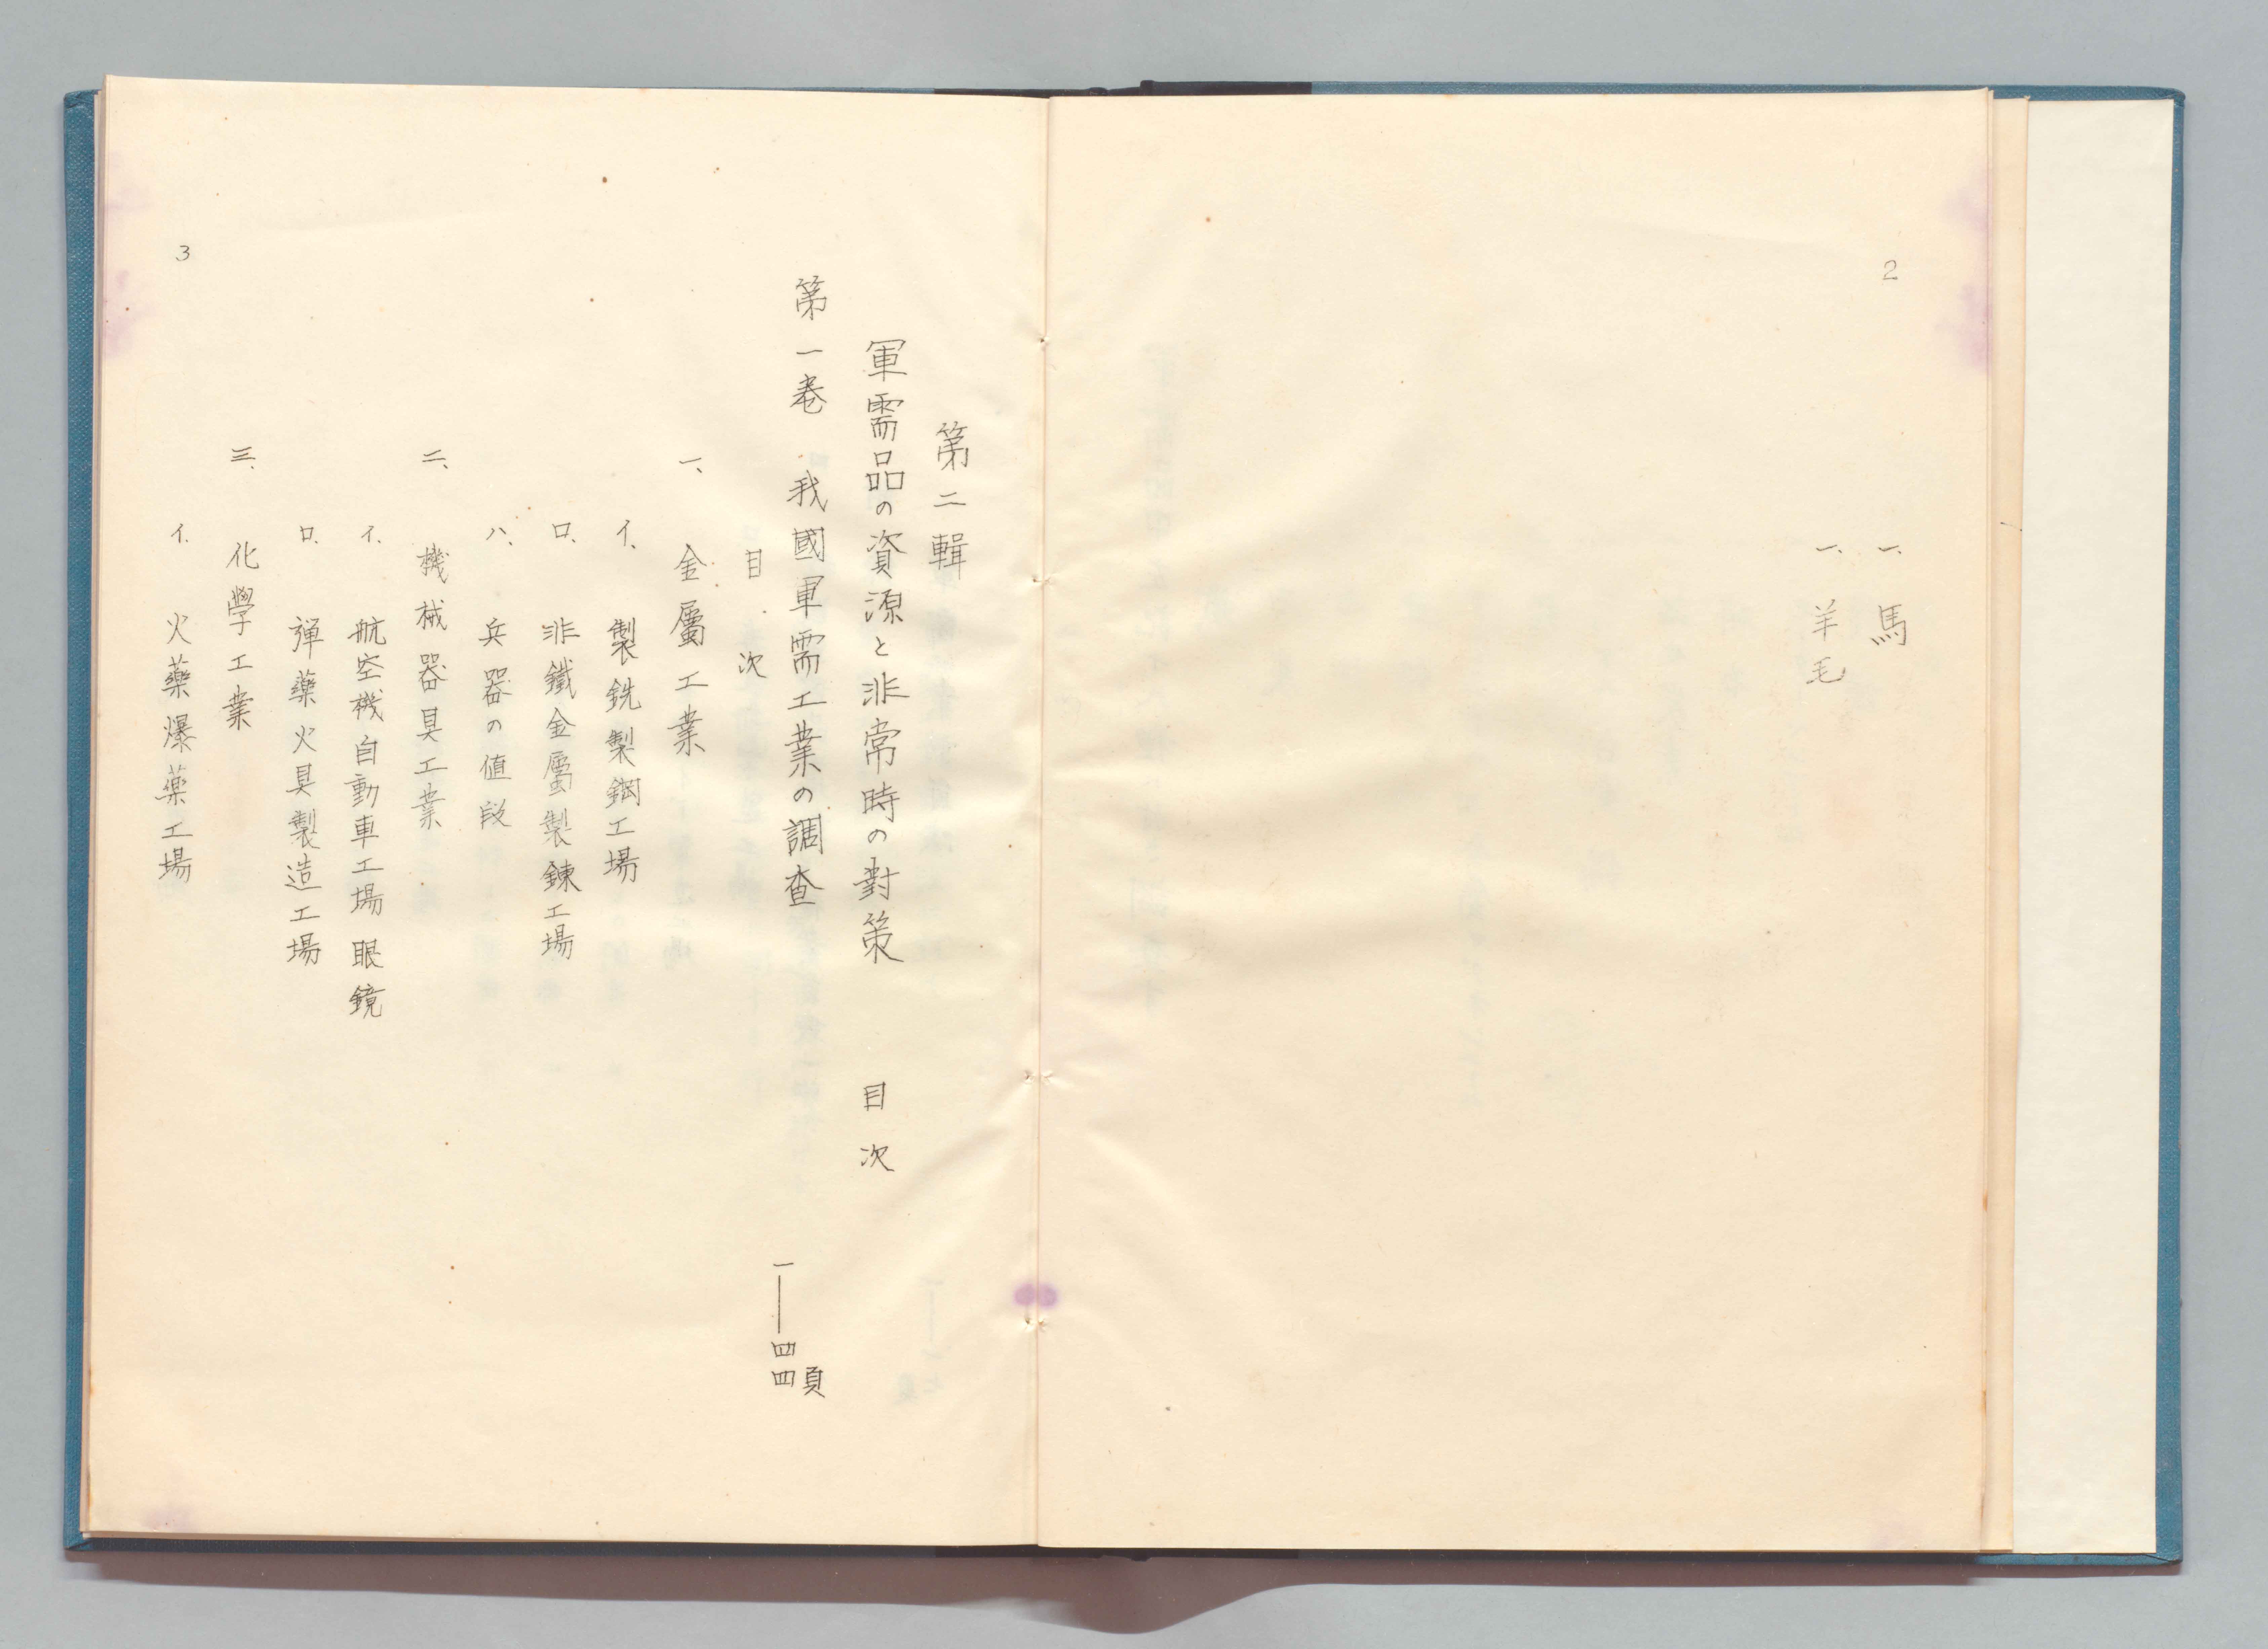 2
一、馬
一、羊毛
第二輯
軍需品の資源と非常時の對策 目次
第一巻 我國軍需工業の調査 一——四四頁
目次
一、金屬工業
イ、製銑製鋼工場
ロ、非鐵金屬製錬工場
ハ、兵器の値段
二、機械器具工業
イ、航空機自動車工場 眼鏡
ロ、弾藥火具製造工場
三、化學工業
イ、火藥爆薬工場
3